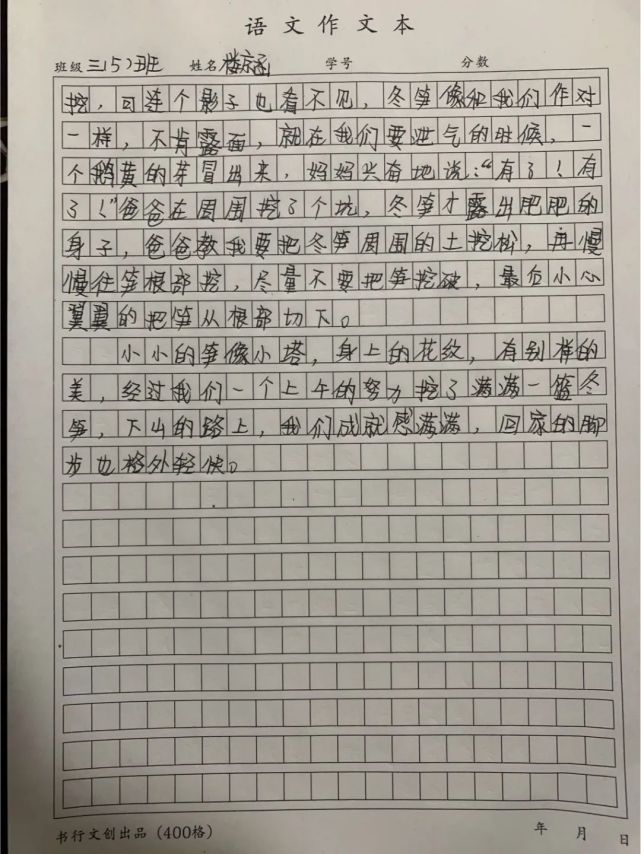 语文作文本
班级 三(5)班 姓名 楼京函 学号 分数
挖，可连个影子也看不见，冬笋像和我们作对
一样，不肯露面，就在我们要泄气的时候，一
个鹅黄的芽冒出来，妈妈兴奋地说：“有了！有
了！”爸爸在周围挖了个坑，冬笋才露出肥肥的
身子，爸爸教我要把冬笋周围的土挖松，再慢
慢往笋根部挖，尽量不要把笋挖破，最后小心
翼翼的把笋从根部切下。
小小的笋像小塔，身上的花纹，有别样的
美，经过我们一个上午的努力挖了满满一篮冬
笋，下山的路上，我们成就感满满，回家的脚
步也格外轻快。
书行文创出品（400格） 年 月 日